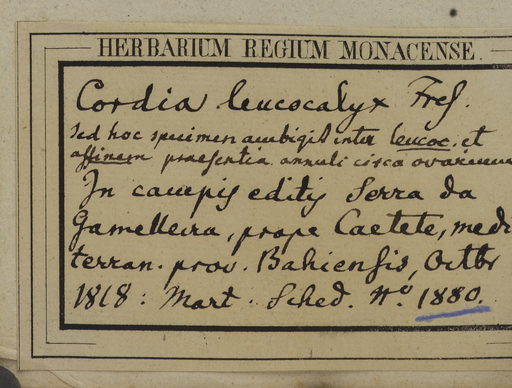 HERBARIUM REGIUM MONACENSE.
Cordia leucocalyx Fres.
sed hoc specimen ambigit inter leucoc. et
affinem praesentia annuli circa ovarium
In campis editis Serra da
Gamelleira, prope Caetete, medi
terran. prov. Bahiensis, Octbr
1818: Mart. Sched. No 1880.